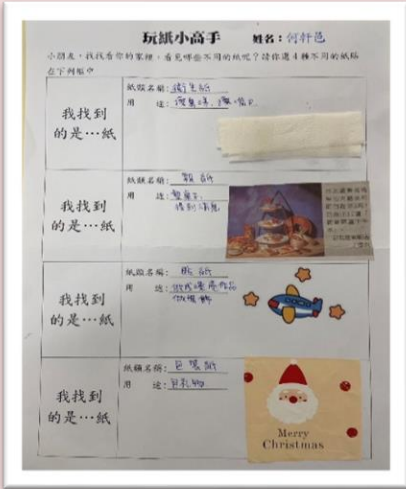 玩紙小高手 姓名:何軒邑
小朋友,找找看你的家裡,看見哪些不同的紙呢?請你選4種不同的紙貼
在下列框中
我找到
的是…紙
紙類名稱:衛生紙
用 途:擤鼻涕、擦嘴巴
我找到
的是…紙
紙類名稱:報紙
用 途:墊桌子、
得到消息
我找到
的是…紙
紙類名稱:貼紙
用 途:
我找到
的是…紙
紙類名稱:包裝紙
用 途:包禮物
Merry
Christmas